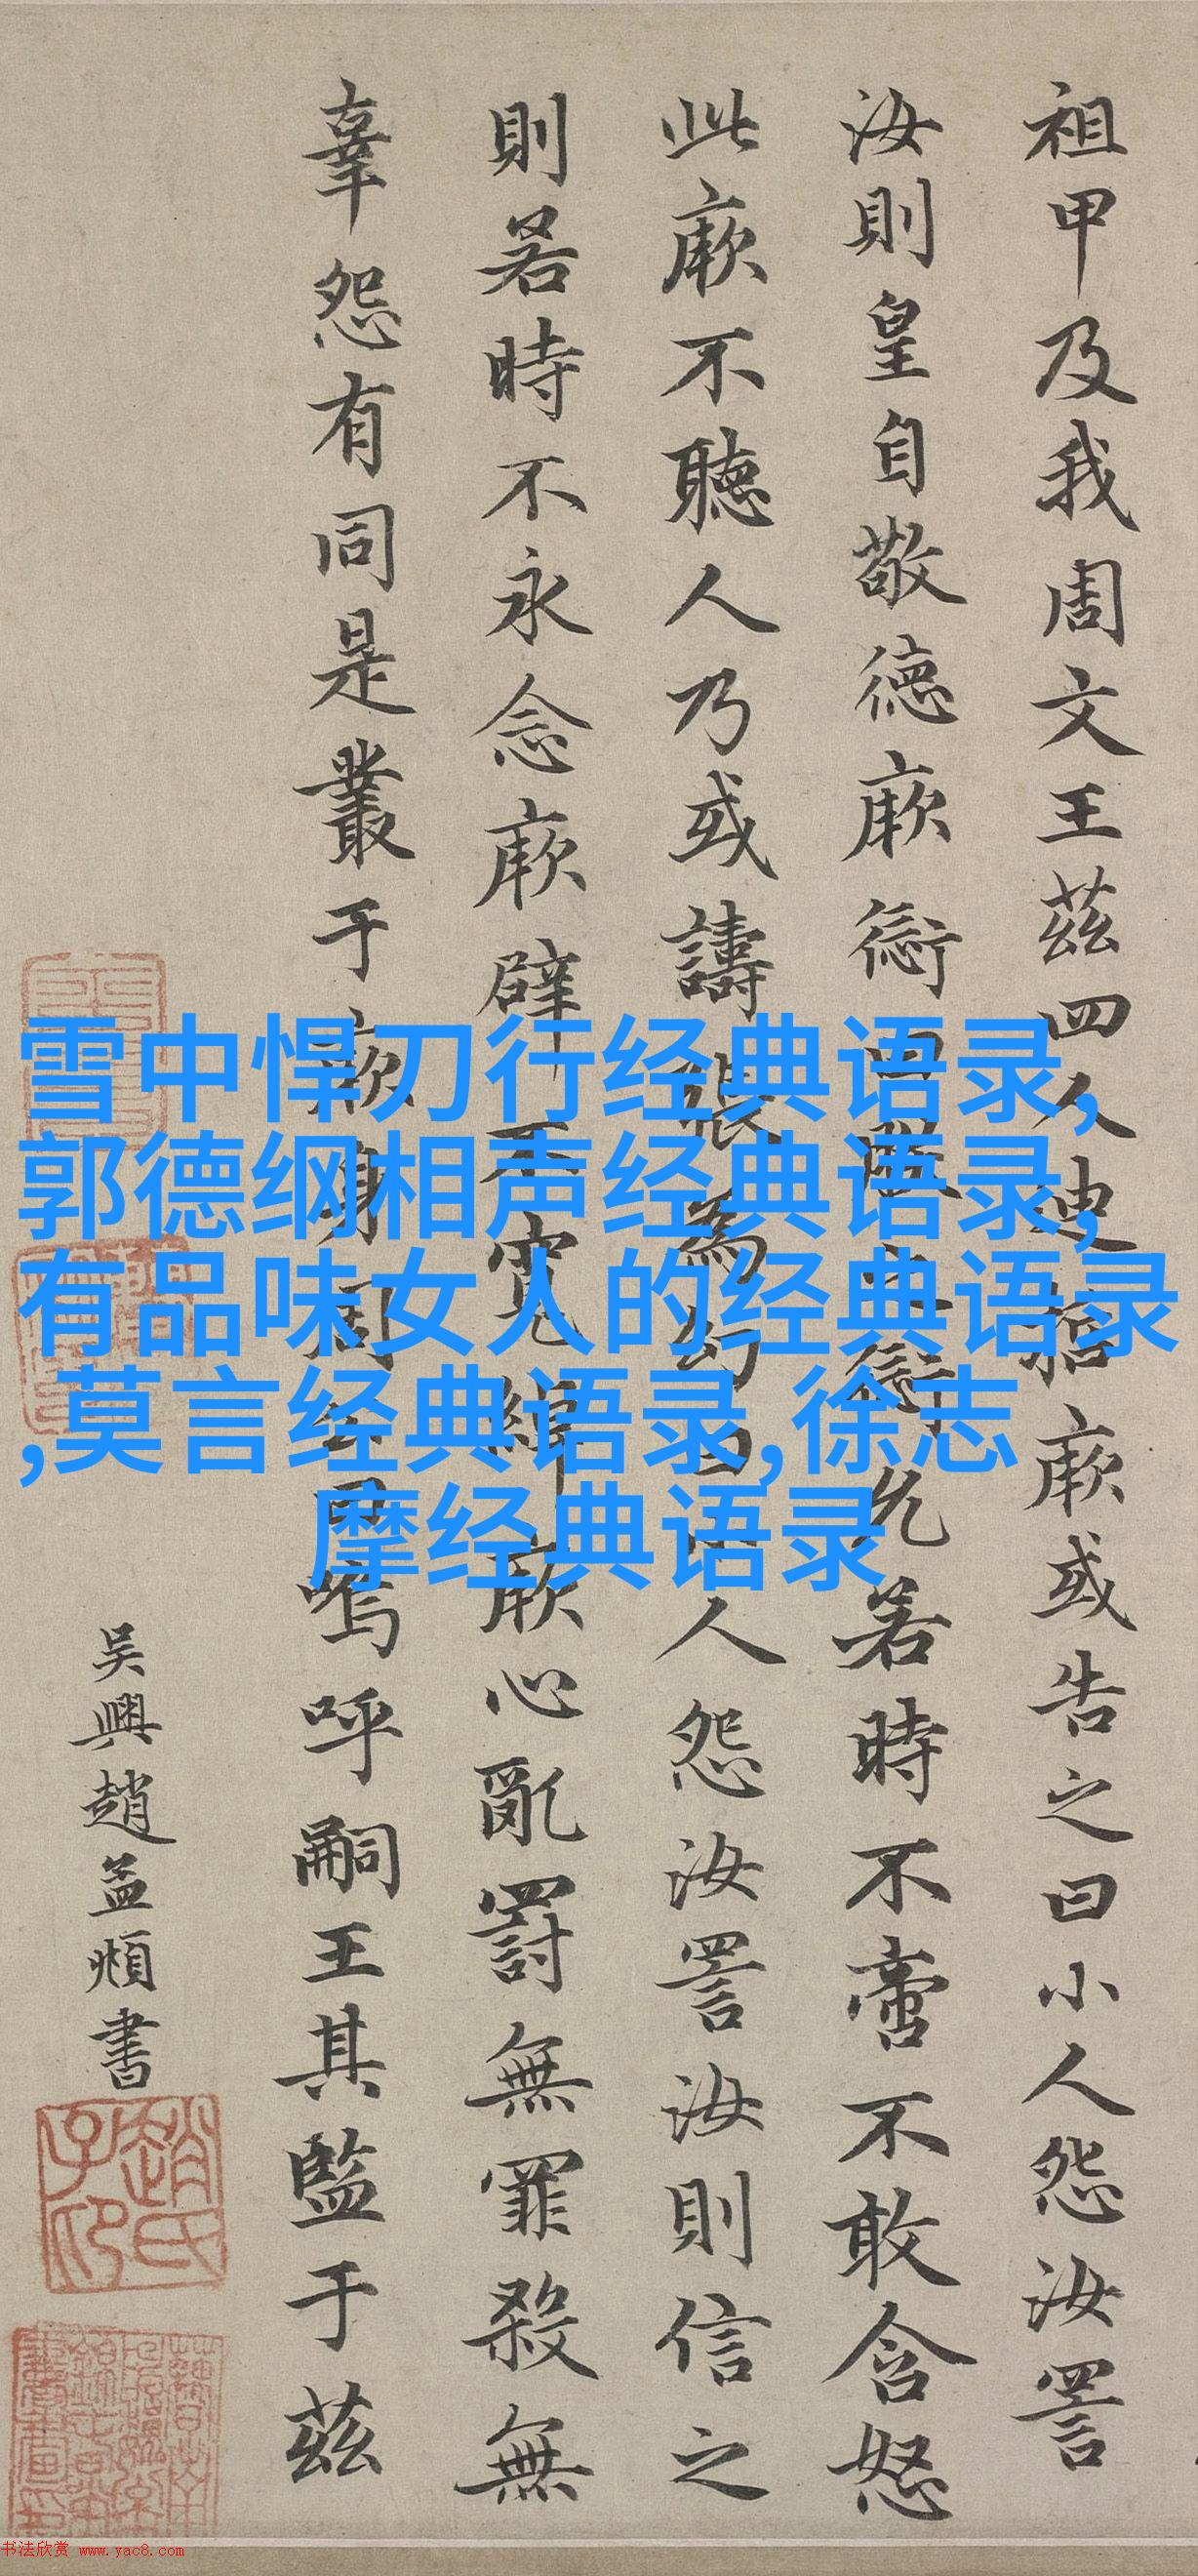 祖甲及我周文王茲四人迪哲厥或告之曰小人怨汝詈
汝則皇自敬德厥愆曰朕之愆允若時不啻不敢含怒
此厥不聽人乃或譸張為幻曰小人怨汝詈汝則信之
則若時不永念厥辟不寬綽厥心亂罰無罪殺無
辜怨有同是叢于厥身周公曰嗚呼嗣王其監于茲
吴興趙孟頫書
趙氏子昂
雪中悍刀行经典语录,
郭德纲相声经典语录,
有品味女人的经典语录
,莫言经典语录,徐志
摩经典语录
书法欣赏 www.yac8.com